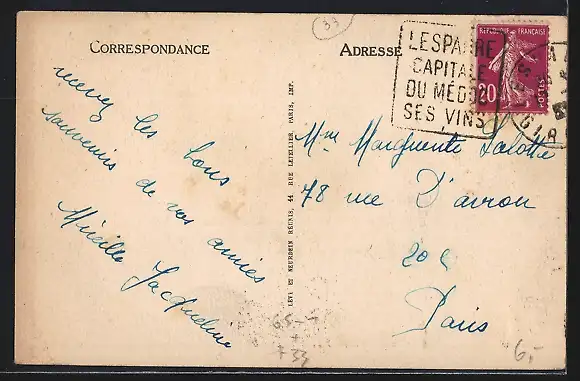 33
CORRESPONDANCE
ADRESSE
LESPARRE
CAPITALE
DU MÉDOC
SES VINS
RÉPUBLIQUE FRANÇAISE
20
POSTES
GIR
recevez les bons
souvenirs de vos amies
Mireille Jacqueline
LÉVY ET NEURDEIN RÉUNIS, 44 RUE LETELLIER, PARIS, IMP.
Mme Marguerite Lalotte
78 rue D'avron
20e
Paris
65-5
+
+33
6,-